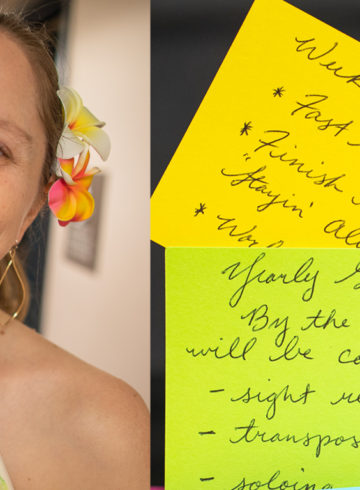 * Fast
* Finish
"Stayin' Al
*
Yearly
By the
will be co
- sight re
- transpos
- soloing